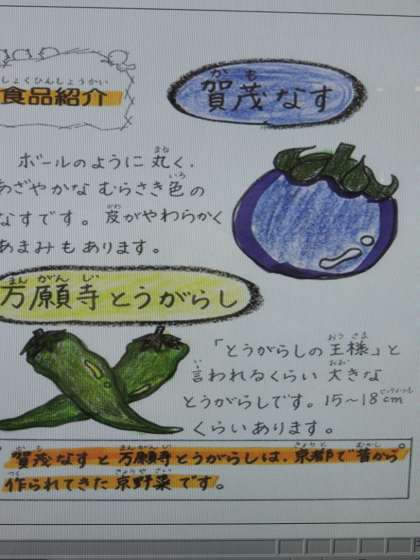 しょくひんしょうかい
食品紹介
かも
賀茂なす
ボールのように丸く、
まる
あざやかな むらさき色の
いろ
なすです。皮がやわらかく
かわ
あまみもあります。
まんがんじ
万願寺とうがらし
おうさま
「とうがらしの王様」と
い おお
言われるくらい 大きな
センチメートル
とうがらしです。15～18cm
くらいあります。
かも まんがんじ きょうと むかし
賀茂なすと万願寺とうがらしは、京都で昔から
つく きょうやさい
作られてきた京野菜です。